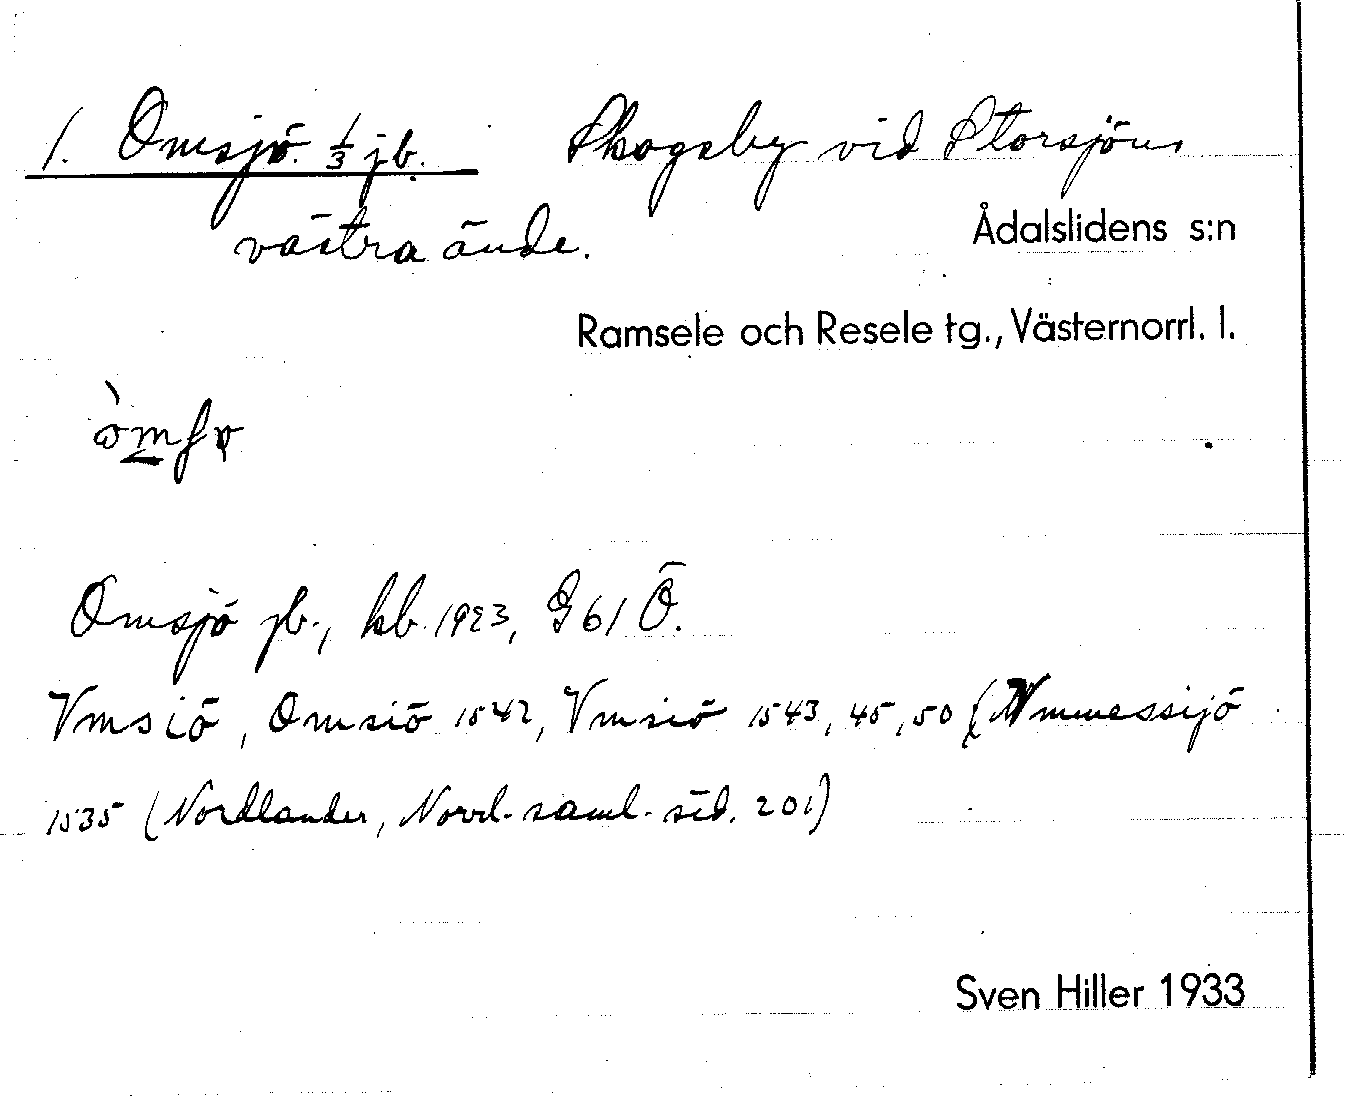 1. Omsjö. 1/3 jb. Skogsby vid Storsjöns
västra ände.
Ådalslidens s:n
Ramsele och Resele tg., Västernorrl. l.
Omsjö jb., kb. 1923, G 61 Ö.
Vmsiö, Omsiö 1542, Vmsiö 1543, 45, 50 (Vmmessijö
1535 (Nordlander, Norrl. saml. sid. 201)
Sven Hiller 1933